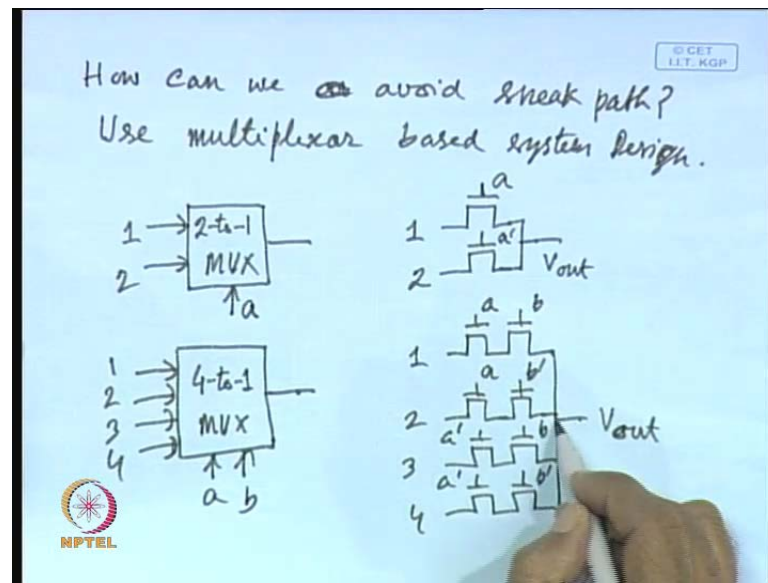 © CET
I.I.T. KGP
How can we avoid sneak path?
Use multiplexar based system Design.
1
2
2-to-1
MUX
a
1
2
a
a'
Vout
1
2
3
4
4-to-1
MUX
a b
1
a b
2
a b'
3
a' b
4
a' b'
Vout
NPTEL